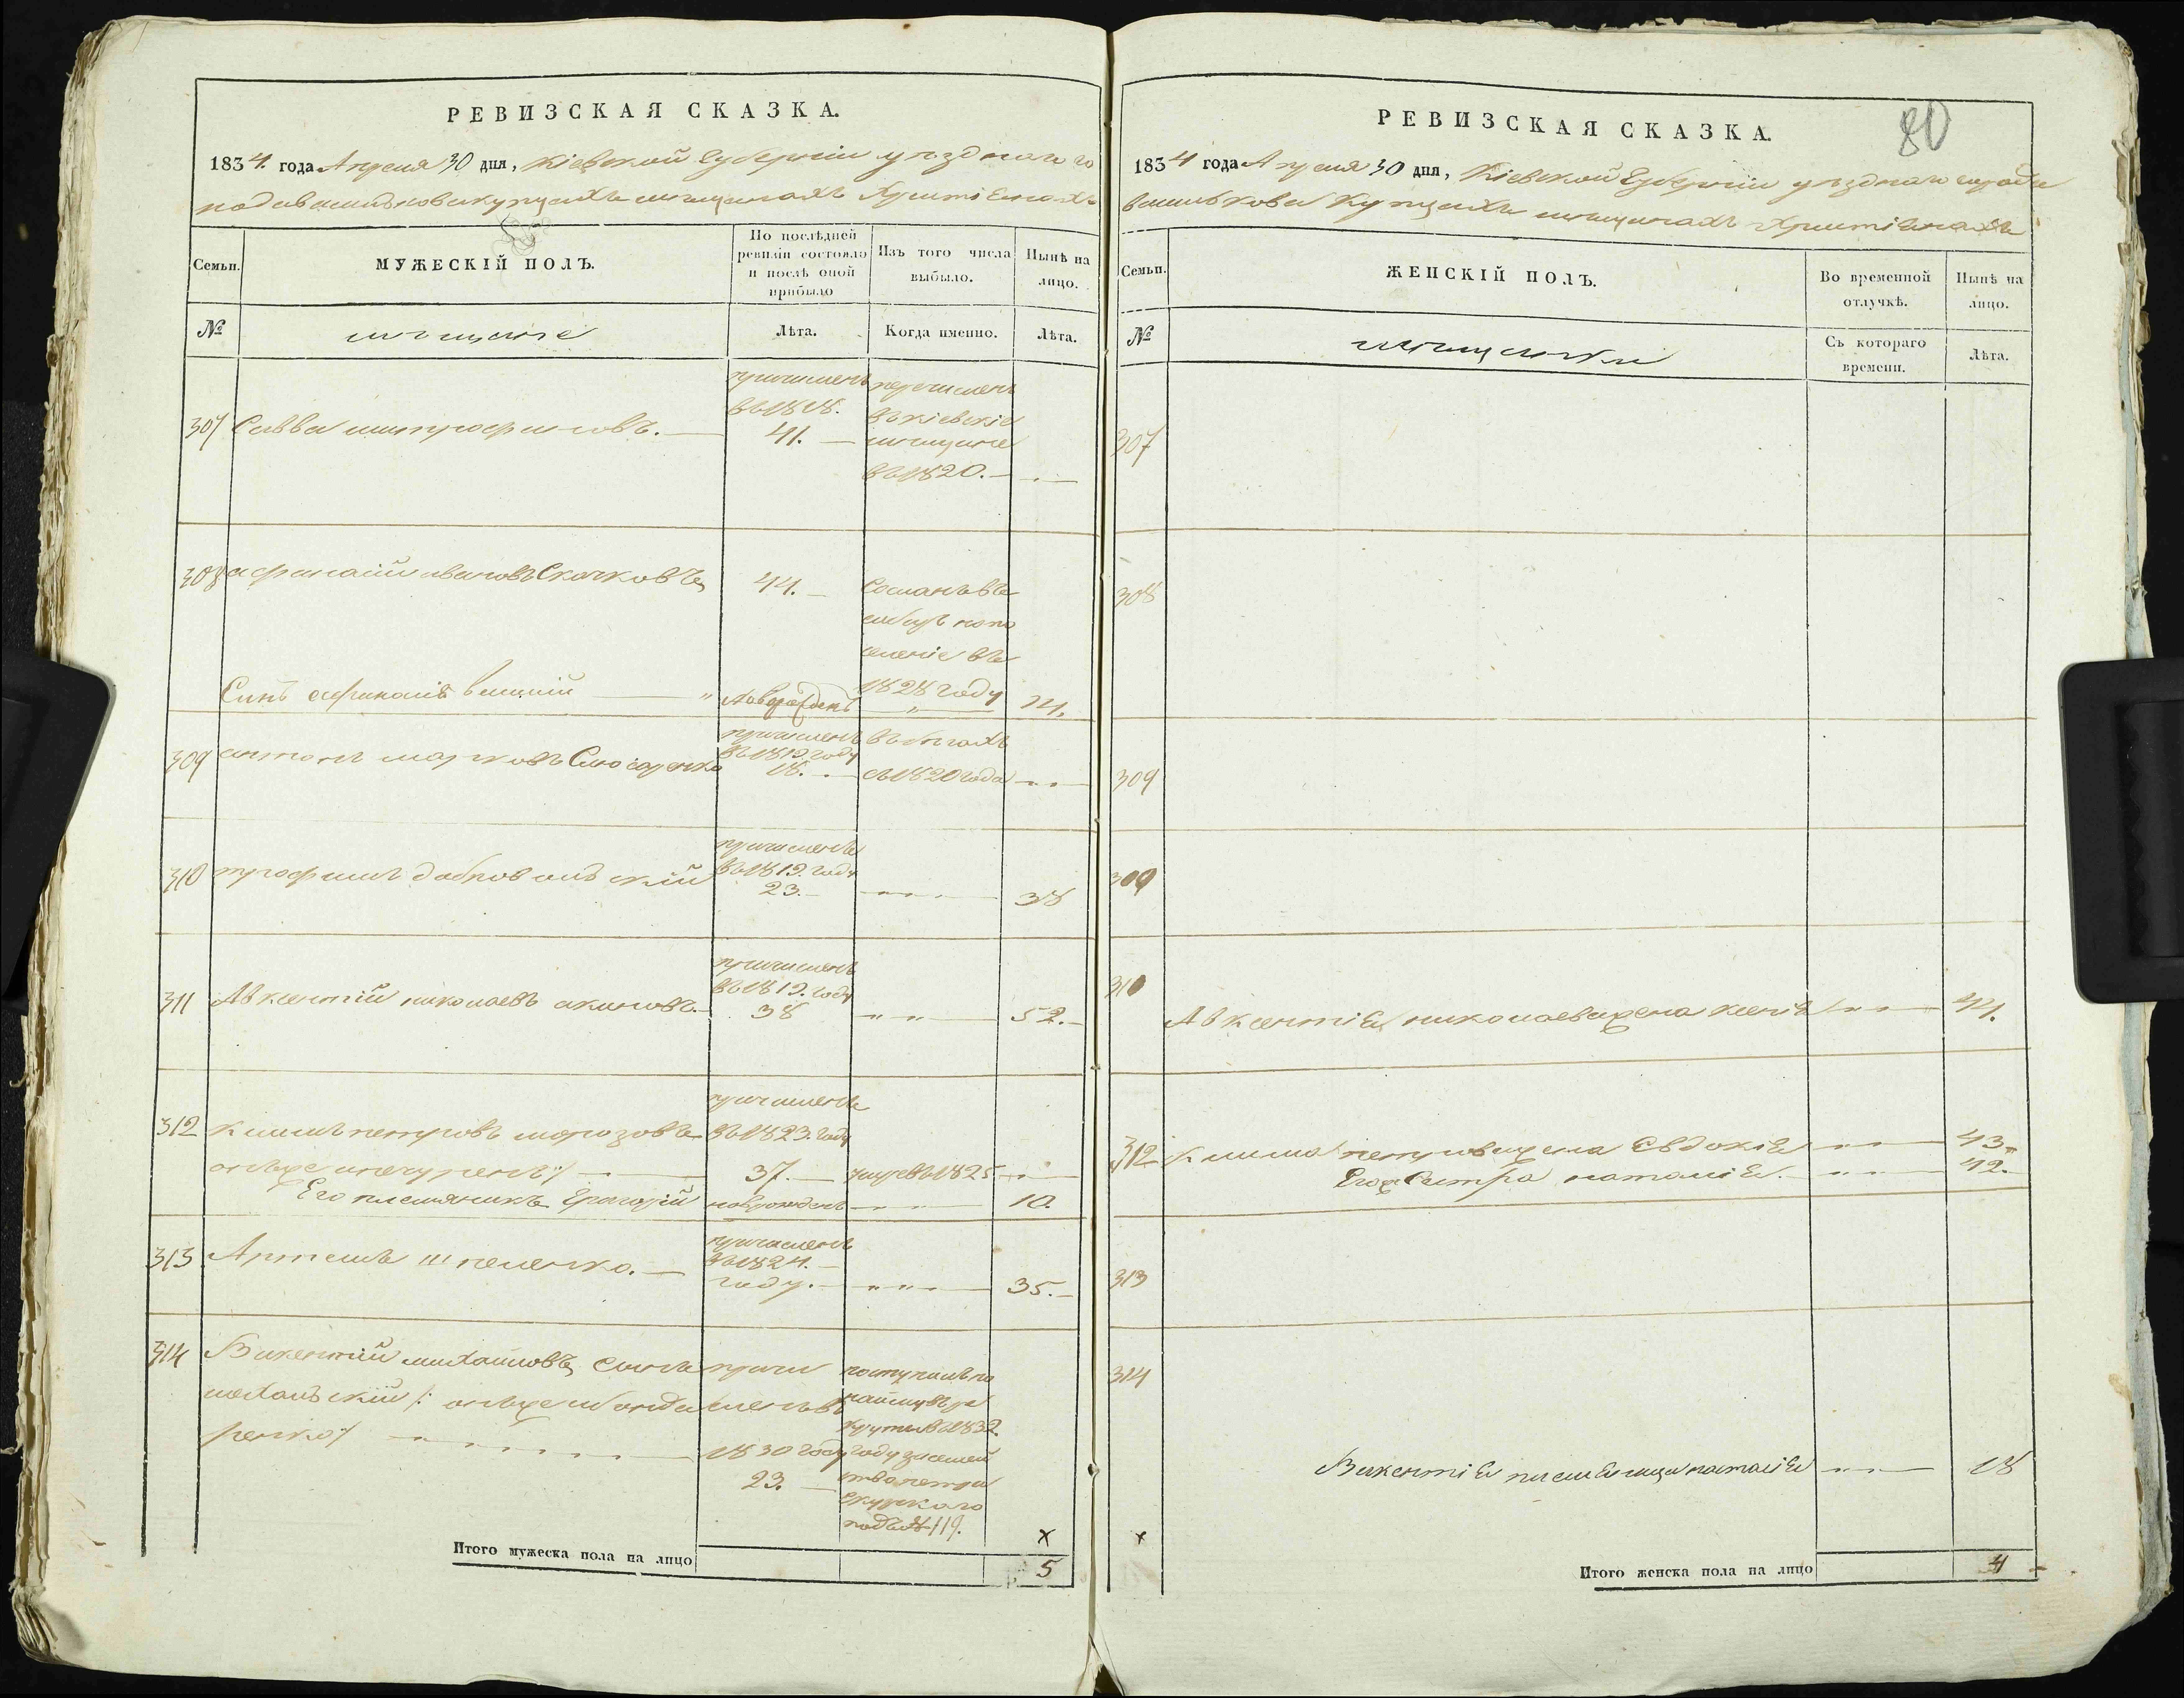 РЕВИЗСКАЯ СКАЗКА.
1834. года Апреля 30 дня, Кіевской Губерніи уезднаго го
рода василькова купцахъ мещанахъ Христіянахъ
Семьи.
МУЖЕСКІЙ ПОЛЪ.
По послѣдней ревизіи состояло и послѣ оной прибыло
Изъ того числа выбыло.
Нынѣ на лицо.
№
мещане
Лѣта.
Когда именно.
Лѣта.
307 Савва митрофановъ.
причисленъ
въ 1818.
41.
перечисленъ
въ кіевскіе
мещане
въ 1820.
308 афанасій ивановъ Скачковъ
44.
Сосланъ въ
сибирь напо
селеніе въ
1828 году
Синъ афанасія василій
новорожденъ
14.
309 антонъ марковъ Слюсаренко
причисленъ
въ 1819. году
18.
въ бегахъ
съ 1820 года
310 трофимъ добровольскій
причисленъ
въ 1819. году
23.
38
311 Авксентій николаевъ акимовъ.
причисленъ
въ 1819. году
38
52.
312 климъ петровъ морозовъ
причисленъ
въ 1823. году
онъже
37.
умре въ 1825
Его племяникъ Григорій
новрожденъ
10.
313 Артемъ шпеленко.
причисленъ
въ 1824.
году.
35.
314 Викентій михайловъ Синъ
мохальскій /: онъже бонда
ренко :/
причи
сленъ въ
1830 году
23.
поступилъ по
найму въ ре
круты въ 1832.
году за семей
ство петра
подъ № 119.
х
Итого мужеска пола на лицо
5
80
РЕВИЗСКАЯ СКАЗКА.
1834 года Апреля 30 дня, Кіевской Губерніи уезднаго города
василькова Купцахъ мещанахъ Христіянахъ
Семьи.
ЖЕНСКІЙ ПОЛЪ.
Во временной отлучкѣ.
Нынѣ на лицо.
№
мещанки
Съ котораго времени.
Лѣта.
307
308
309
309
310
Авксентія николаева жена ксенія
44.
312 Клима петрова жена Евдокія
43.
Егоже Сестра наталія.
42.
313
314
Викентія племяница наталія
18
х
Итого женска пола на лицо
4